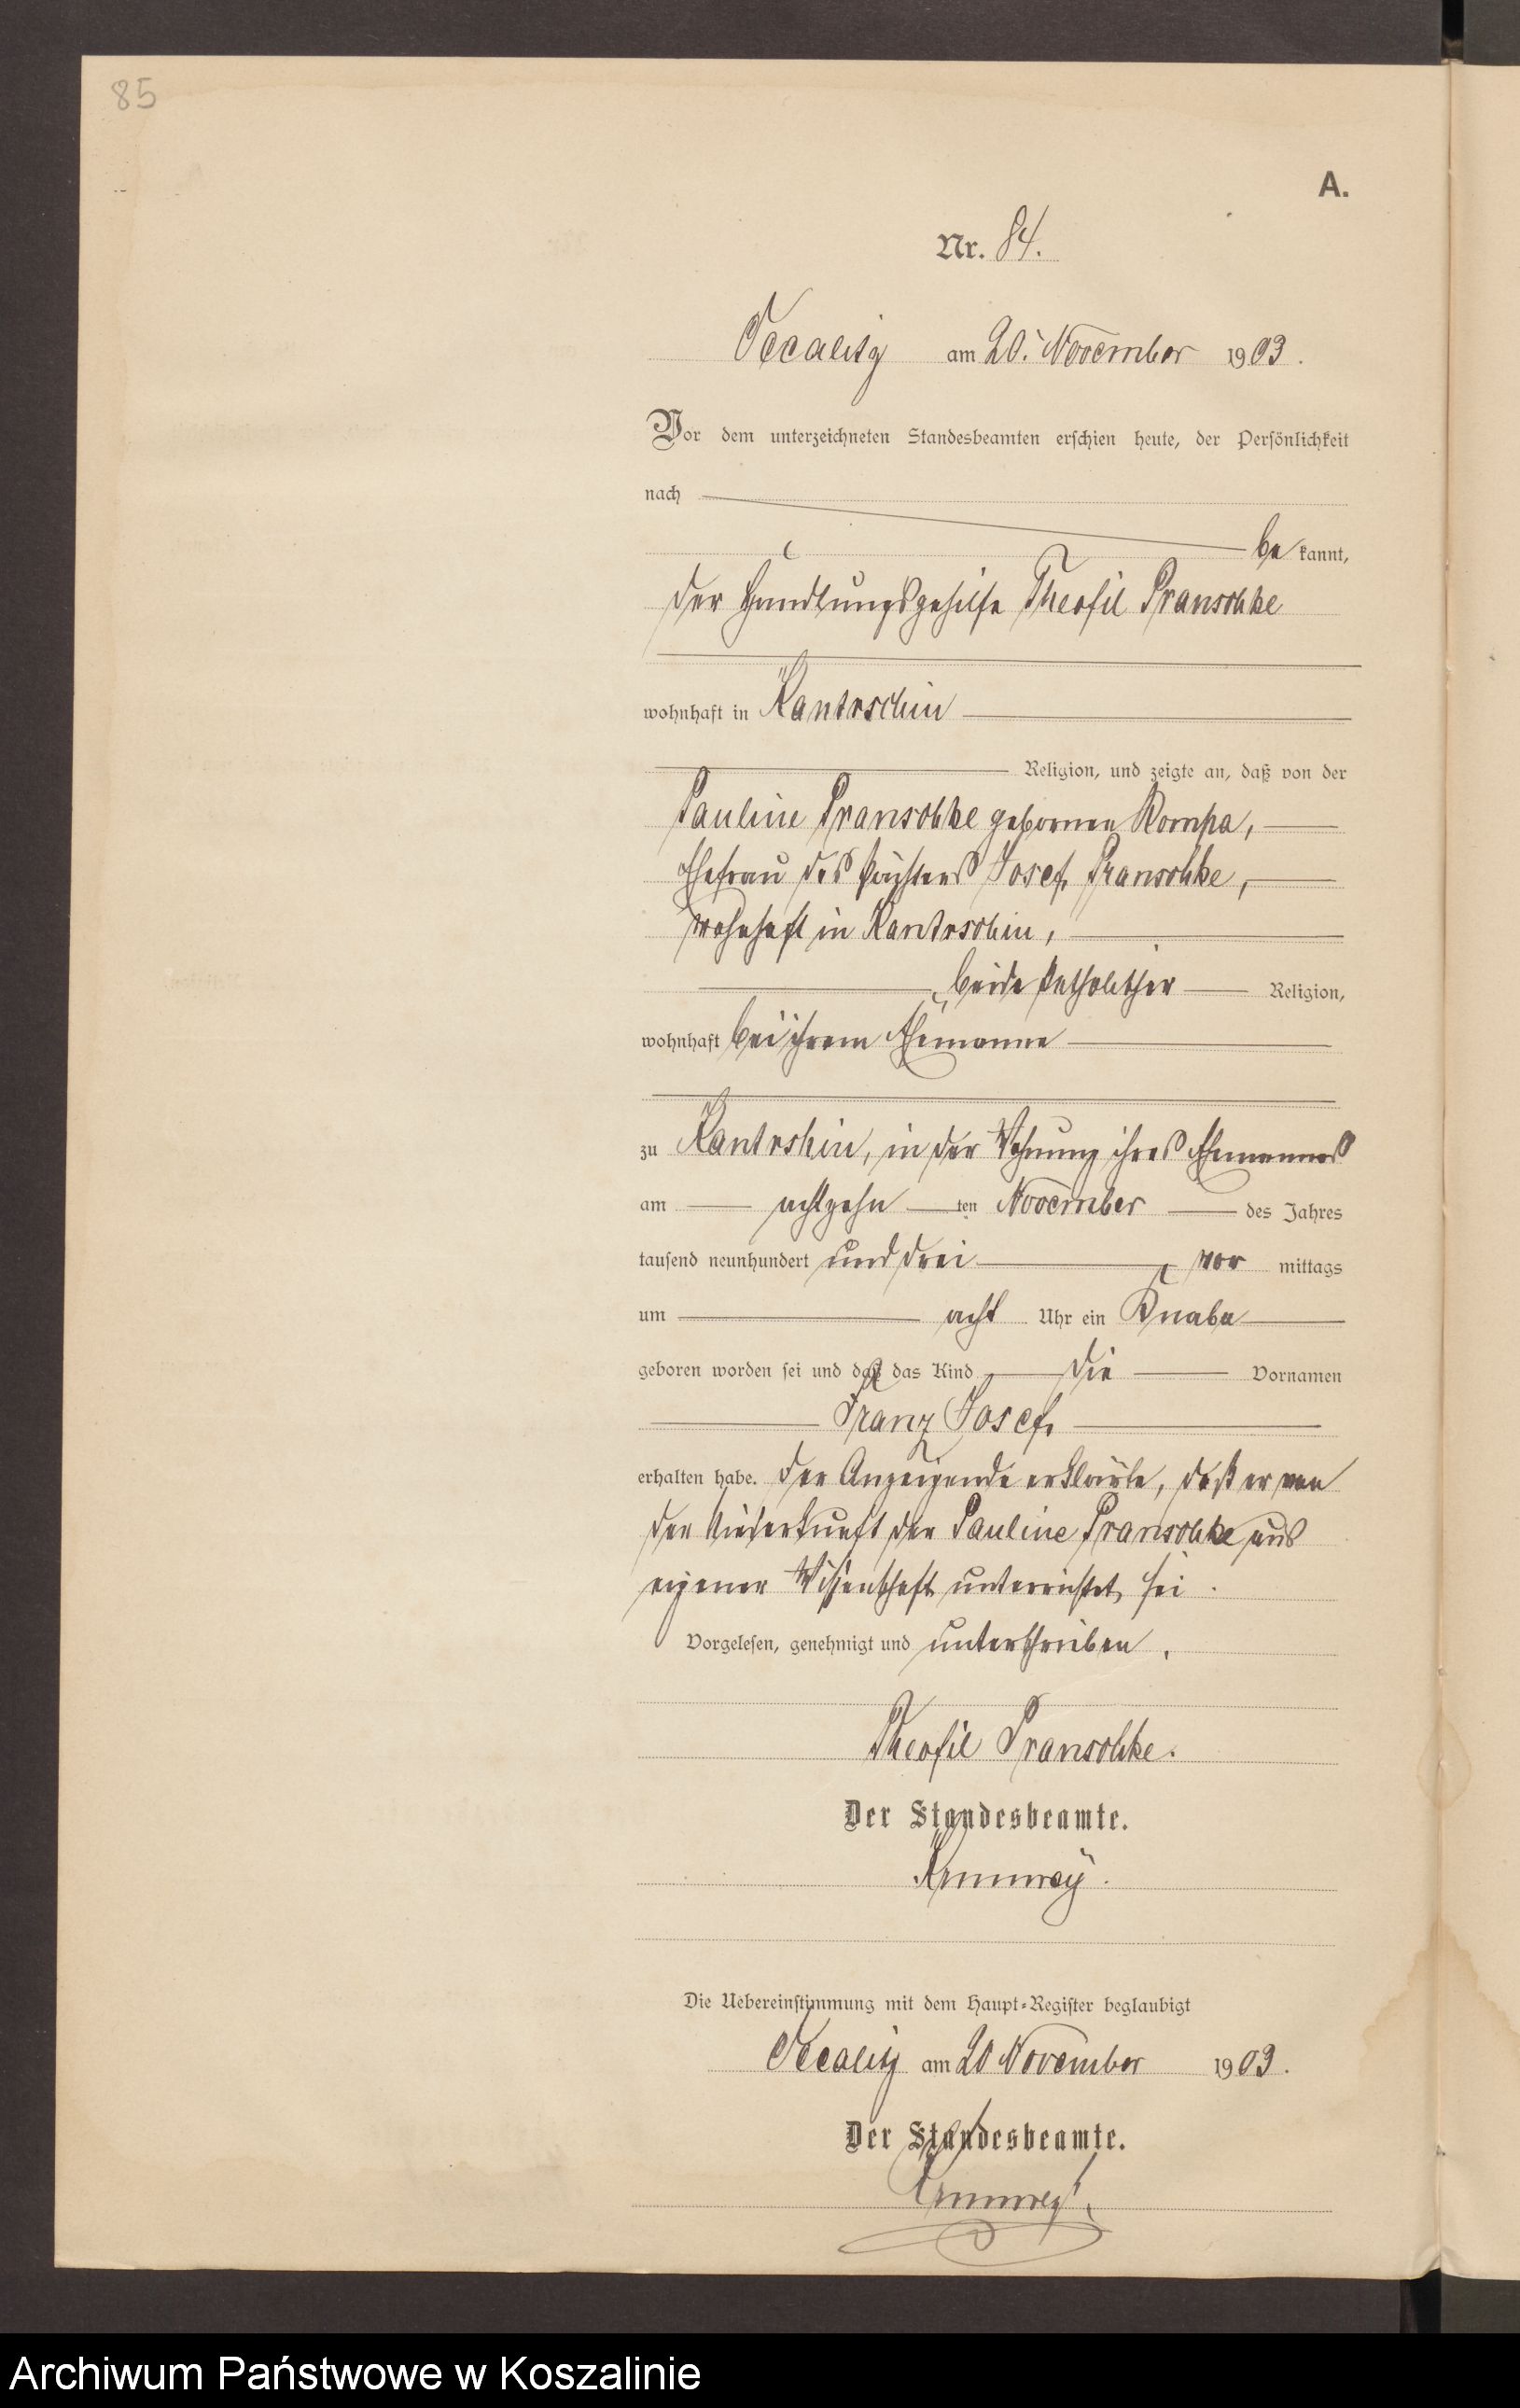 85
A.
Nr. 84.
Occalitz am 20. November 1903.
Vor dem unterzeichneten Standesbeamten erschien heute, der Persönlichkeit
nach
be kannt,
der Handlungsgehilfe Theofil Pranschke
wohnhaft in Kantrschin
Religion, und zeigte an, daß von der
Pauline Pranschke geborenen Rompa,
Ehefrau des Pächters Josef Pranschke,
wohnhaft in Kantrschin,
beide katholischer Religion,
wohnhaft bei ihrem Ehemanne
zu Kantrshin, in der Wohnung ihres Ehemannes
am achtzehn ten November des Jahres
tausend neunhundert und drei, vor mittags
um acht Uhr ein Knabe
geboren worden sei und daß das Kind die Vornamen
Franz Josef,
erhalten habe. Der Anzeigende erklärte, daß er von
der Niederkunft der Pauline Pranschke aus
eigener Wissenschaft unterrichtet sei.
Vorgelesen, genehmigt und unterschrieben.
Theofil Pranschke.
Der Standesbeamte.
Die Uebereinstimmung mit dem Haupt-Register beglaubigt
Occalitz am 20 November 1903.
Der Standesbeamte.
Archiwum Państwowe w Koszalinie